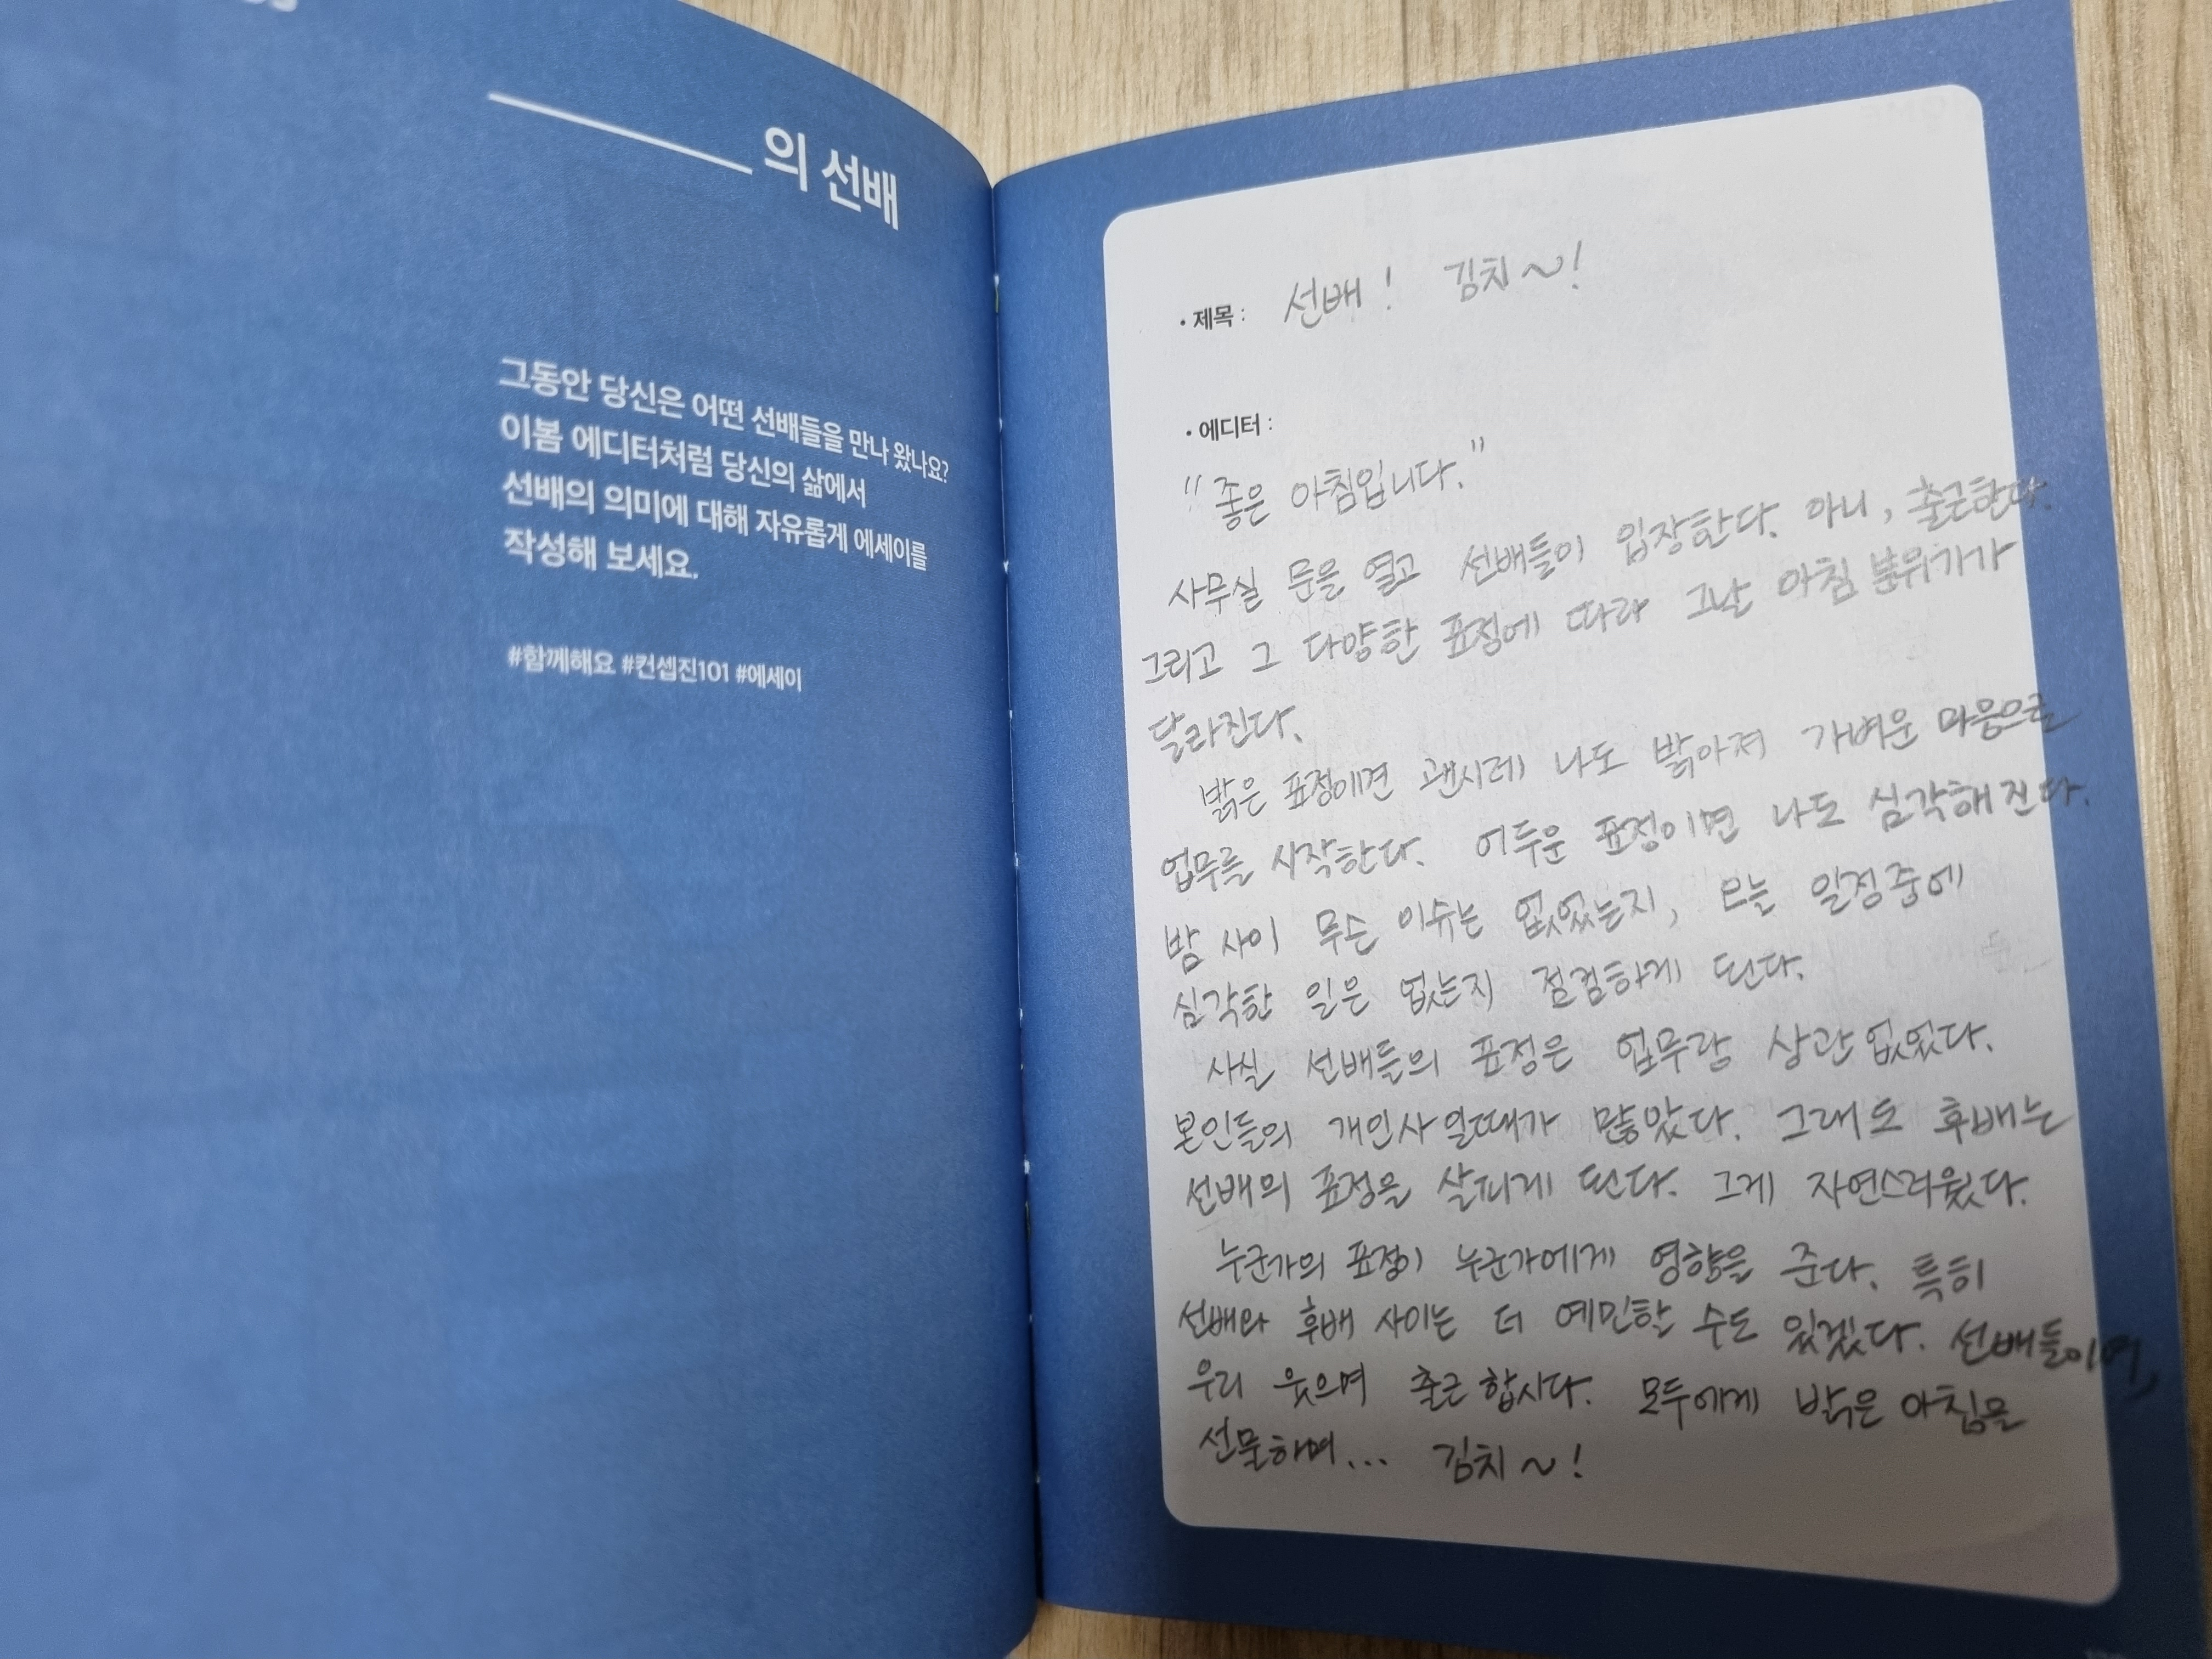 의 선배
그동안 당신은 어떤 선배들을 만나 왔나요?
이봄 에디터처럼 당신의 삶에서
선배의 의미에 대해 자유롭게 에세이를
작성해 보세요.
#함께해요 #컨셉진101 #에세이
• 제목 : 선배! 김치~!
• 에디터 :
"좋은 아침입니다."
사무실 문을 열고 선배들이 입장한다. 아니, 출근한다.
그리고 그 다양한 표정에 따라 그날 아침 분위기가
달라진다.
밝은 표정이면 괜시레 나도 밝아져 가벼운 마음으로
업무를 시작한다. 어두운 표정이면 나도 심각해진다.
밤 사이 무슨 이슈는 없었는지, 오늘 일정중에
심각한 일은 없는지 점검하게 된다.
사실 선배들의 표정은 업무랑 상관없었다.
본인들의 개인사일때가 많았다. 그래도 후배는
선배의 표정을 살피게 된다. 그게 자연스러웠다.
누군가의 표정이 누군가에게 영향을 준다. 특히
선배와 후배 사이는 더 예민할 수도 있겠다. 선배들이여,
우리 웃으며 출근합시다. 모두에게 밝은 아침을
선물하며... 김치~!